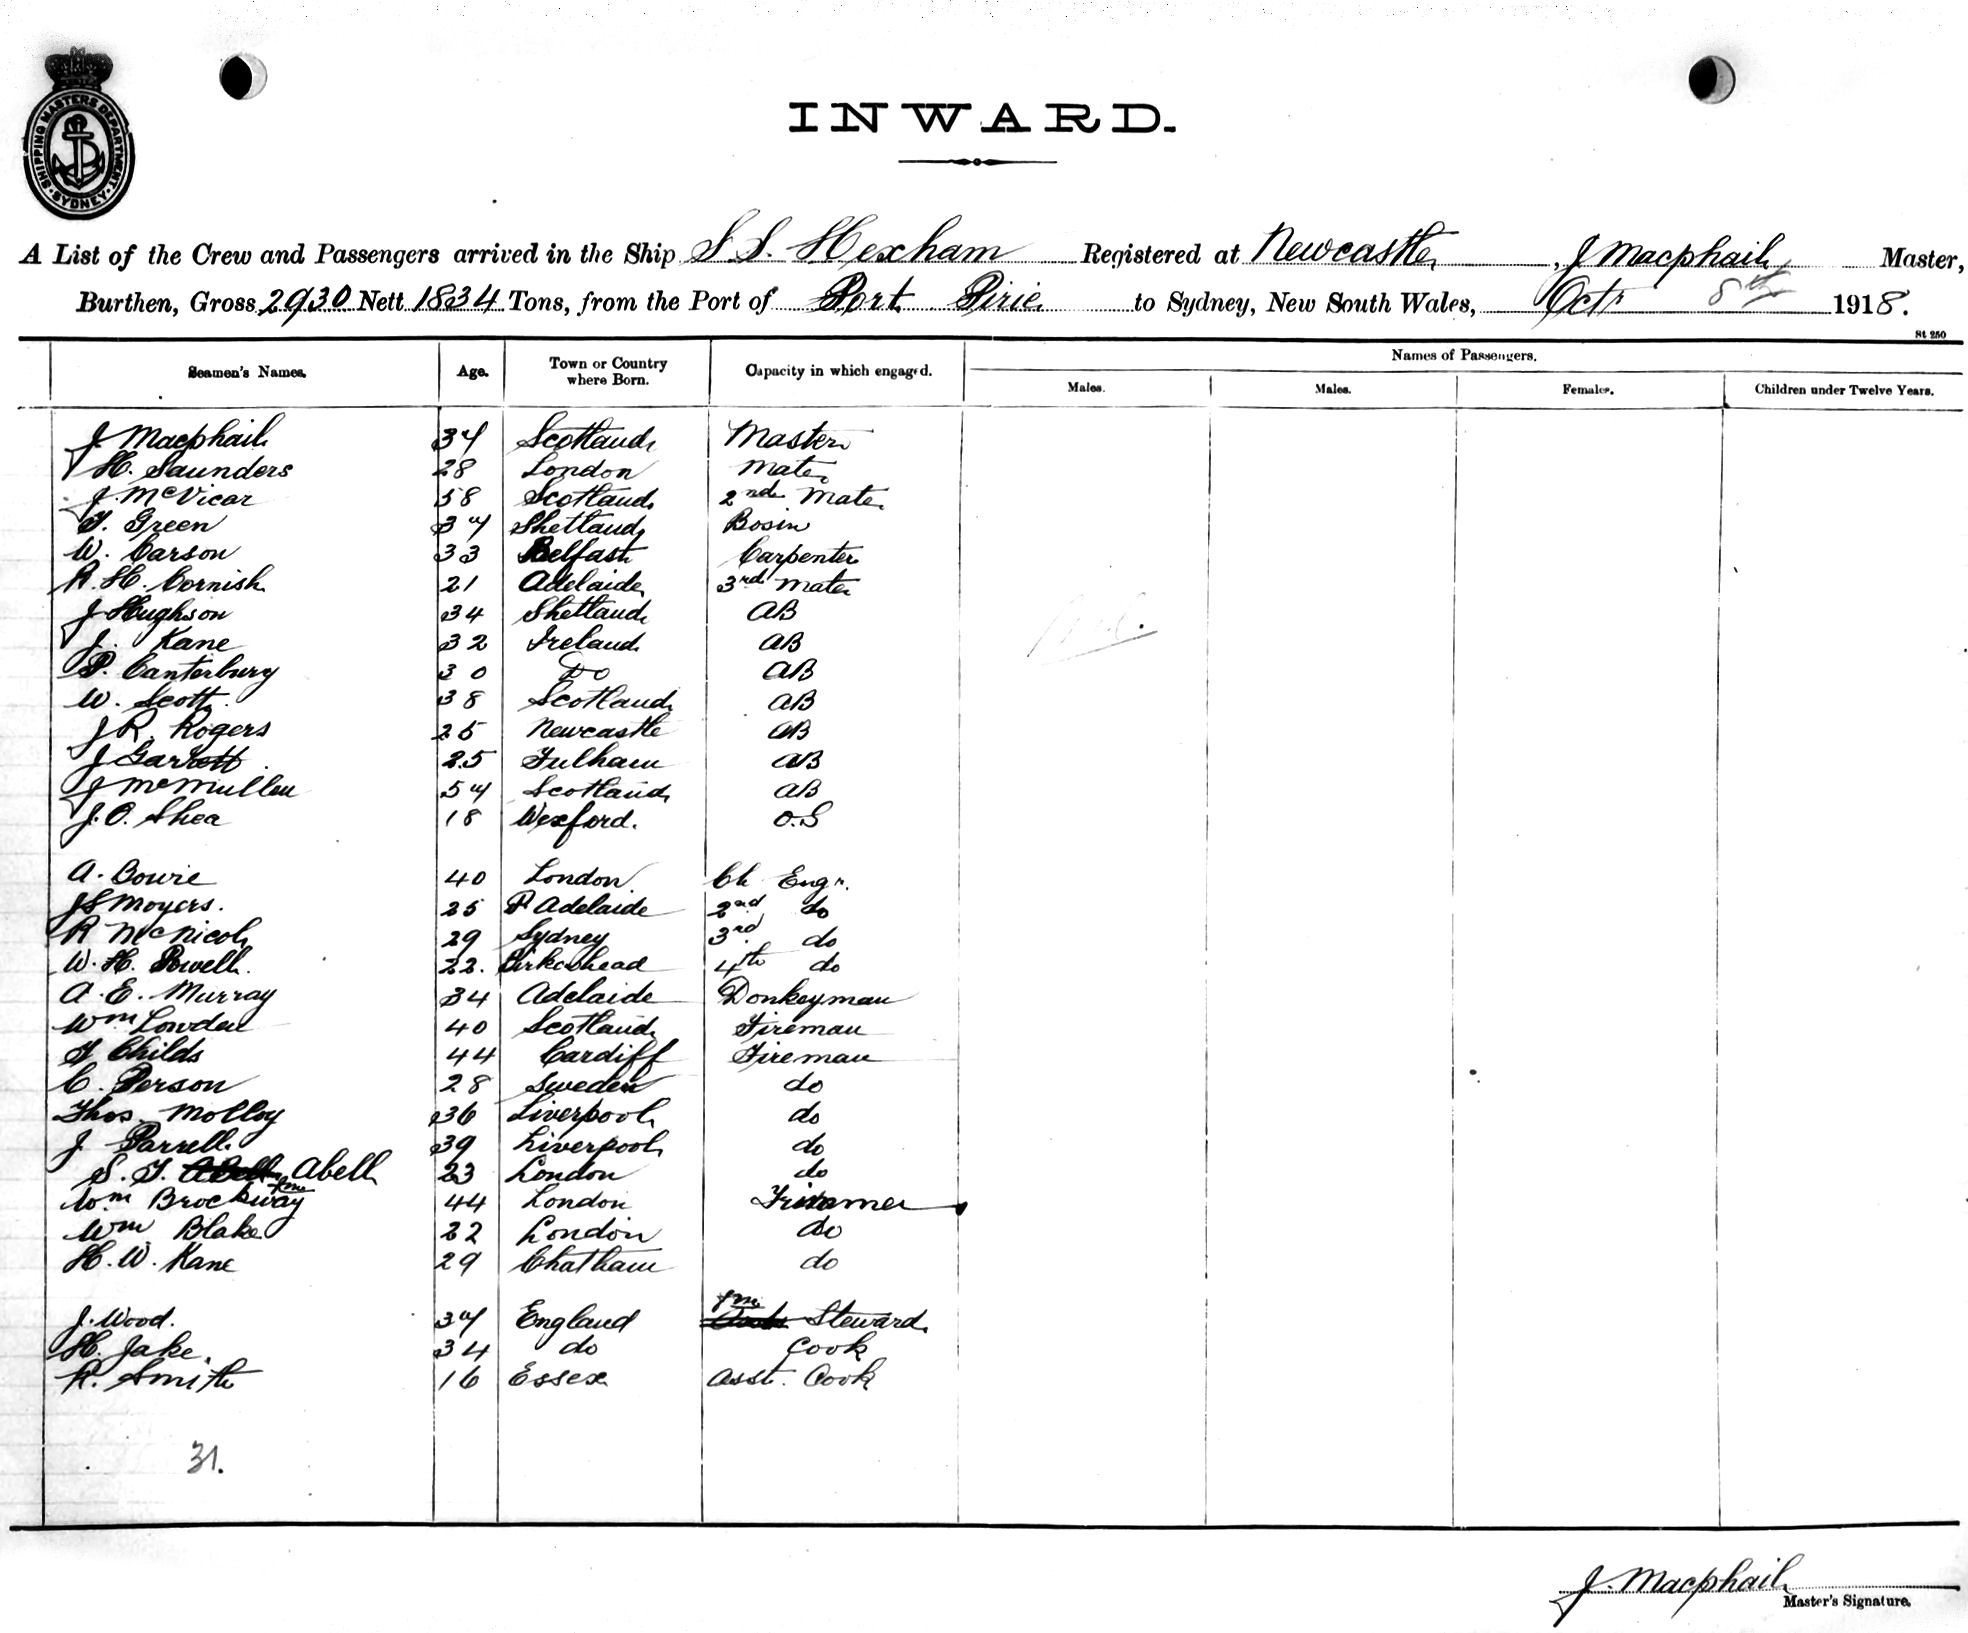 SHIPPING MASTERS DEPARTMENT. SYDNEY
INWARD.
A List of the Crew and Passengers arrived in the Ship S.S. Hexham Registered at Newcastle, J Macphail Master,
Burthen, Gross 2930 Nett 1834 Tons, from the Port of Port Pirie to Sydney, New South Wales, Octr 8th 1918.
St 250
Seamen's Names. Age. Town or Country where Born. Capacity in which engaged. Names of Passengers.
Males. Males. Females. Children under Twelve Years.
J. Macphail 34 Scotland Master
H. Saunders 28 London Mate
J. McVicar 58 Scotland 2nd Mate
T. Green 34 Shetland Bosin
W. Carson 33 Belfast Carpenter
R. H. Cornish 21 Adelaide 3rd Mate
J Hughson 34 Shetland AB
J. Kane 32 Ireland AB
P. Canterbury 30 Do AB
W. Scott 38 Scotland AB
J R. Rogers 25 Newcastle AB
J Garrett 25 Fulham AB
J McMullen 54 Scotland AB
J. O. Shea 18 Wexford. O.S
A. Bowie 40 London Ch Engr.
J S Moyers. 25 P Adelaide 2nd do
R McNicol 29 Sydney 3rd do
W. H. Powell. 22. Birkenhead 4th do
A. E. Murray 34 Adelaide Donkeyman
Wm Lowden 40 Scotland Fireman
T Childs 44 Cardiff Fireman
C. Person 28 Sweden do
Thos. Molloy 36 Liverpool do
J Farrell 39 Liverpool do
S. T. Abell 23 London do
Wm Brockway 44 London Trimmer
Wm Blake 22 London do
H. W. Kane 29 Chatham do
J. Wood. 34 England Steward
H. Jake. 34 do Cook
R. Smith 16 Essex Asst. Cook
31.
J. Macphail
Master's Signature.